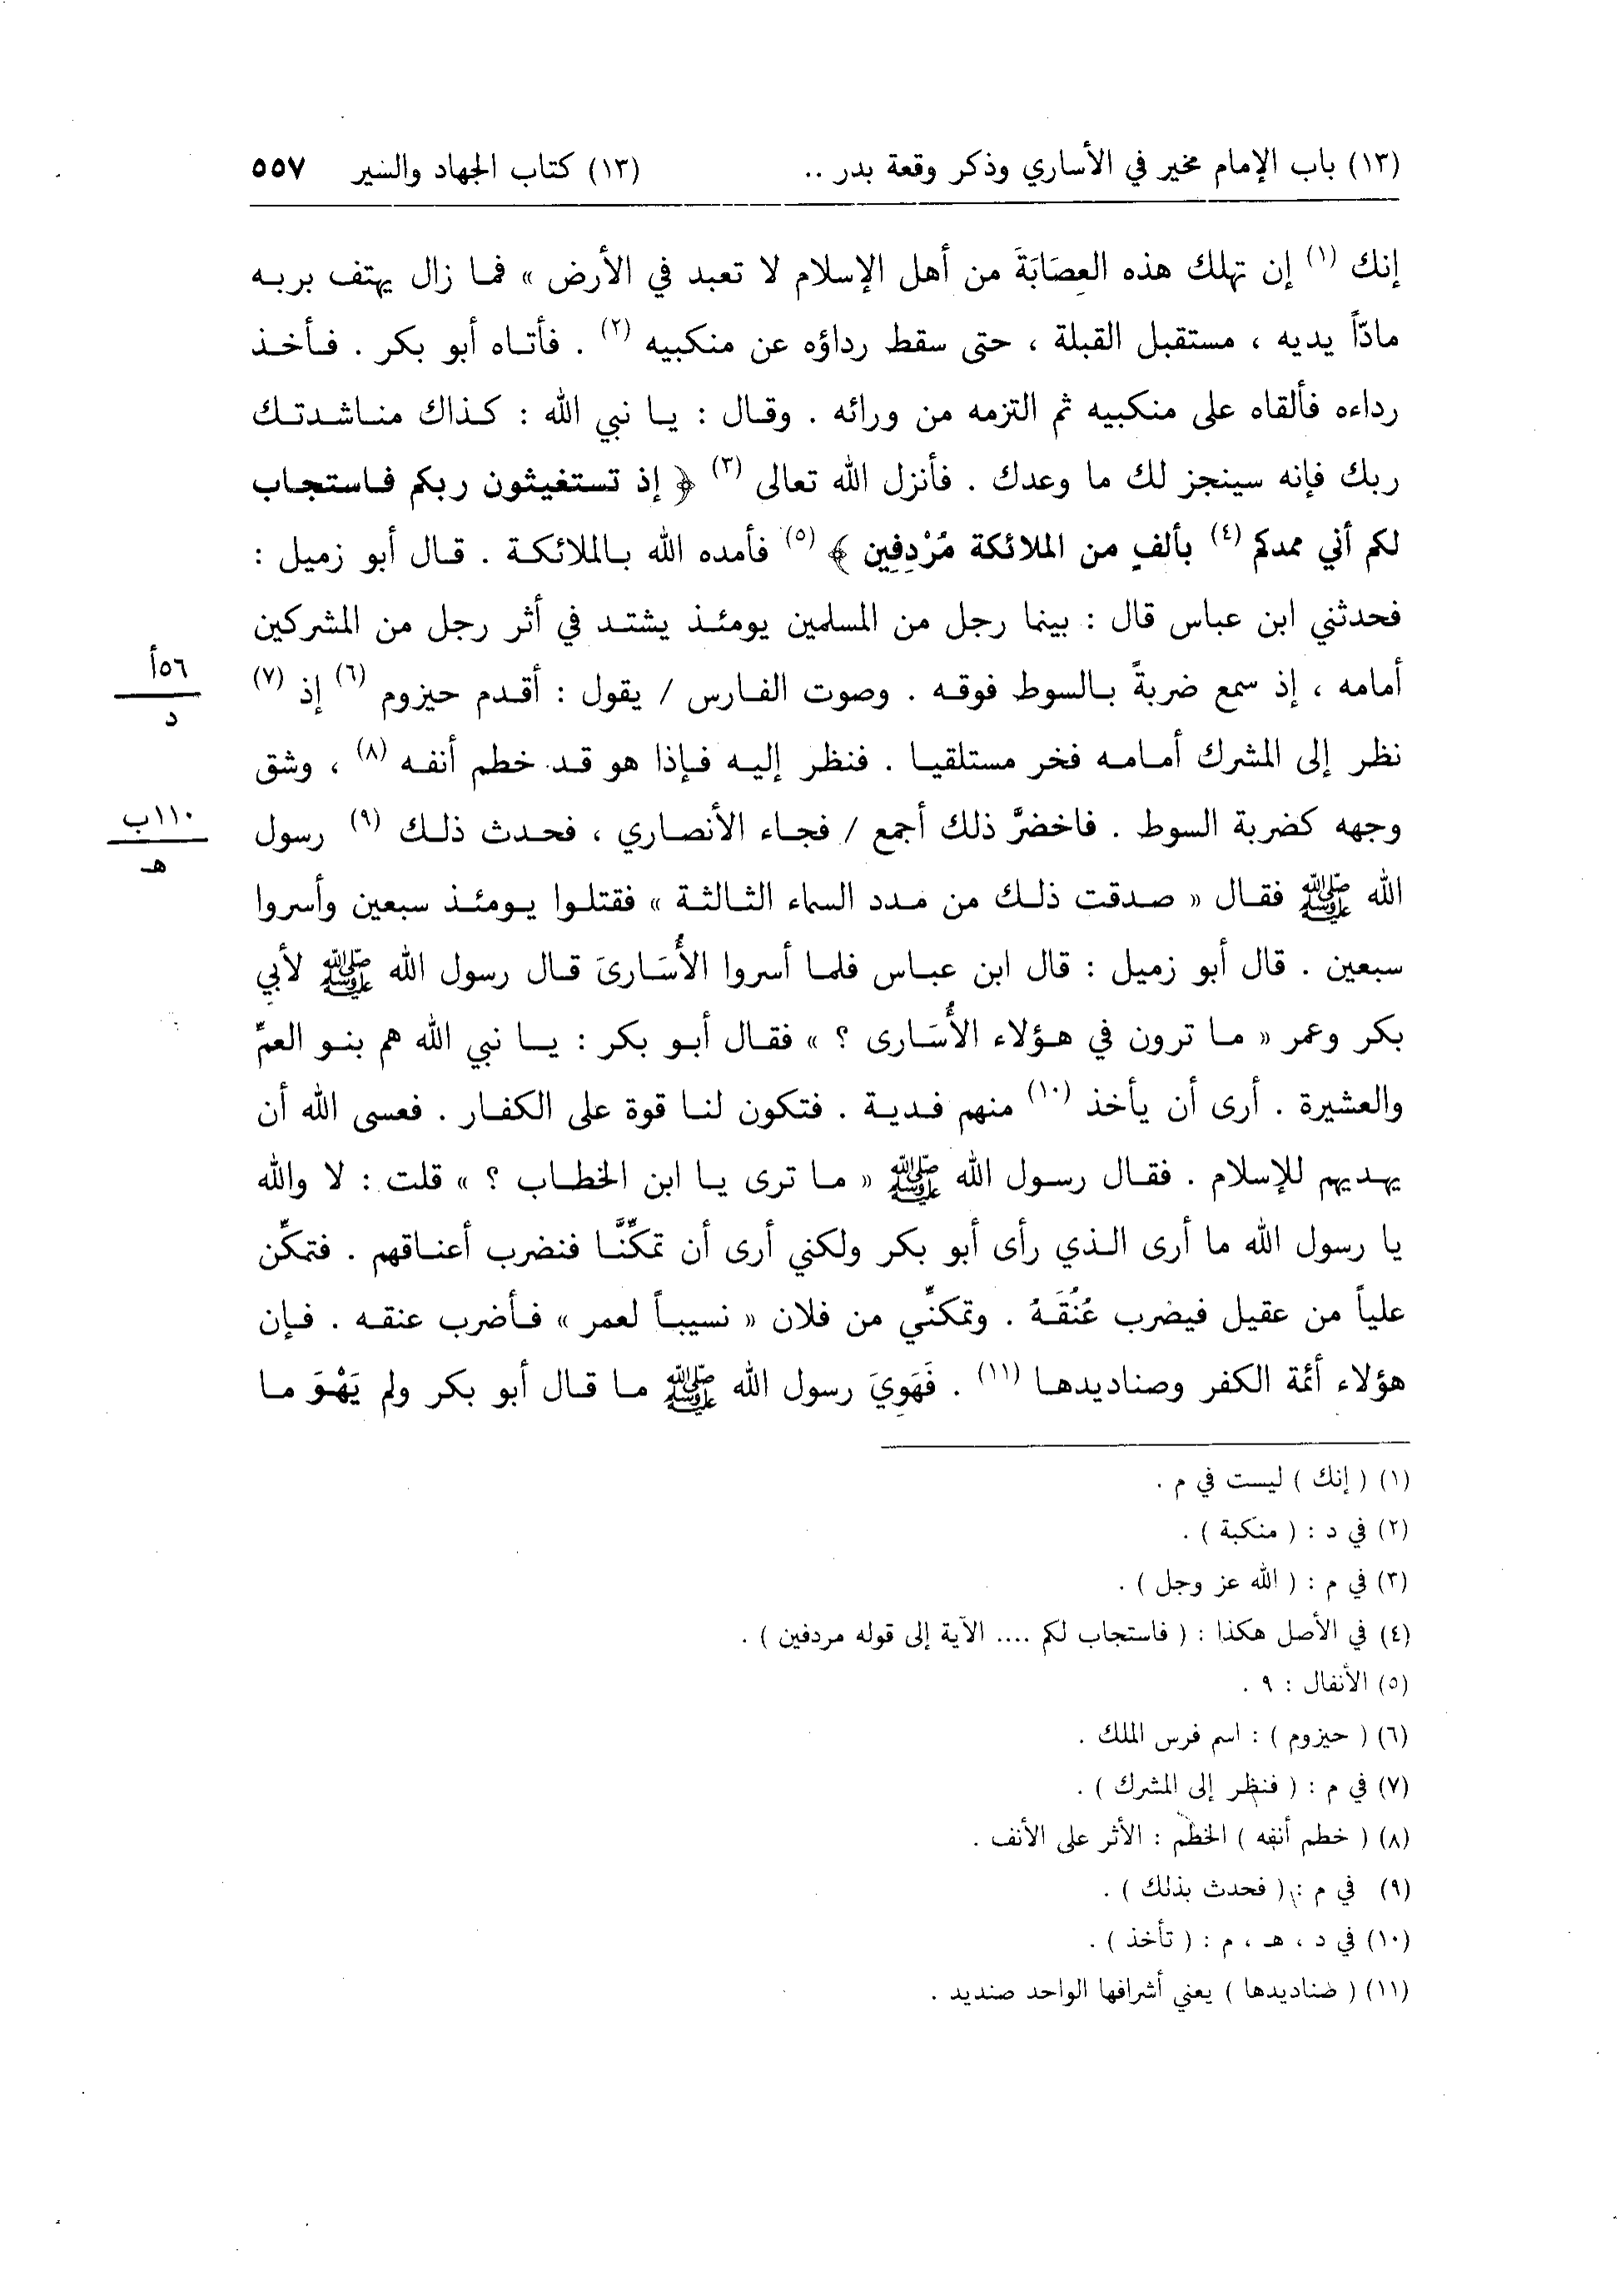 (١٣) باب الإمام مخير في الأساري وذكر وقعة بدر .. (١٣) كتاب الجهاد والسير ٥٥٧
إنك (١) إن تهلك هذه العِصَابَةَ من أهل الإسلام لا تعبد في الأرض » فما زال يهتف بربه
مادّاً يديه ، مستقبل القبلة ، حتى سقط رداؤه عن منكبيه (٢) . فأتاه أبو بكر . فأخذ
رداءه فألقاه على منكبيه ثم التزمه من ورائه . وقال : يا نبي الله : كذاك مناشدتك
ربك فإنه سينجز لك ما وعدك . فأنزل الله تعالى (٣) ﴿ إذ تستغيثون ربكم فاستجاب
لكم أني ممدكم (٤) بألفٍ من الملائكة مُرْدِفِين ﴾ (٥) فأمده الله بالملائكة . قال أبو زميل :
فحدثني ابن عباس قال : بينما رجل من المسلمين يومئذ يشتد في أثر رجل من المشركين
أمامه ، إذ سمع ضربةً بالسوط فوقه . وصوت الفارس / يقول : أقدم حيزوم (٦) إذ (٧)
٥٦أ
د
نظر إلى المشرك أمامه فخر مستلقيا . فنظر إليه فإذا هو قد خطم أنفه (٨) ، وشق
وجهه كضربة السوط . فاخضرَّ ذلك أجمع / فجاء الأنصاري ، فحدث ذلك (٩) رسول
١١٠ب
هـ
الله ﷺ فقال « صدقت ذلك من مدد السماء الثالثة » فقتلوا يومئذ سبعين وأسروا
سبعين . قال أبو زميل : قال ابن عباس فلما أسروا الأُسَارىَ قال رسول الله ﷺ لأبي
بكر وعمر « ما ترون في هؤلاء الأُسَارى ؟ » فقال أبو بكر : يا نبي الله هم بنو العمِّ
والعشيرة . أرى أن يأخذ (١٠) منهم فدية . فتكون لنا قوة على الكفار . فعسى الله أن
يهديهم للإسلام . فقال رسول الله ﷺ « ما ترى يا ابن الخطاب ؟ » قلت : لا والله
يا رسول الله ما أرى الذي رأى أبو بكر ولكني أرى أن تمكِّنَّا فنضرب أعناقهم . فتمكِّن
علياً من عقيل فيضرب عُنُقَهُ . وتمكنِّي من فلان « نسيباً لعمر » فأضرب عنقه . فإن
هؤلاء أئمة الكفر وصناديدها (١١) . فَهَوِيَ رسول الله ﷺ ما قال أبو بكر ولم يَهْوَ ما
(١) ( إنك ) ليست في م .
(٢) في د : ( منكبة ) .
(٣) في م : ( الله عز وجل ) .
(٤) في الأصل هكذا : ( فاستجاب لكم .... الآية إلى قوله مردفين ) .
(٥) الأنفال : ٩ .
(٦) ( حيزوم ) : اسم فرس الملك .
(٧) في م : ( فنظر إلى المشرك ) .
(٨) ( خطم أنفه ) الخطم : الأثر على الأنف .
(٩) في م : ( فحدث بذلك ) .
(١٠) في د ، هـ ، م : ( تأخذ ) .
(١١) ( صناديدها ) يعني أشرافها الواحد صنديد .